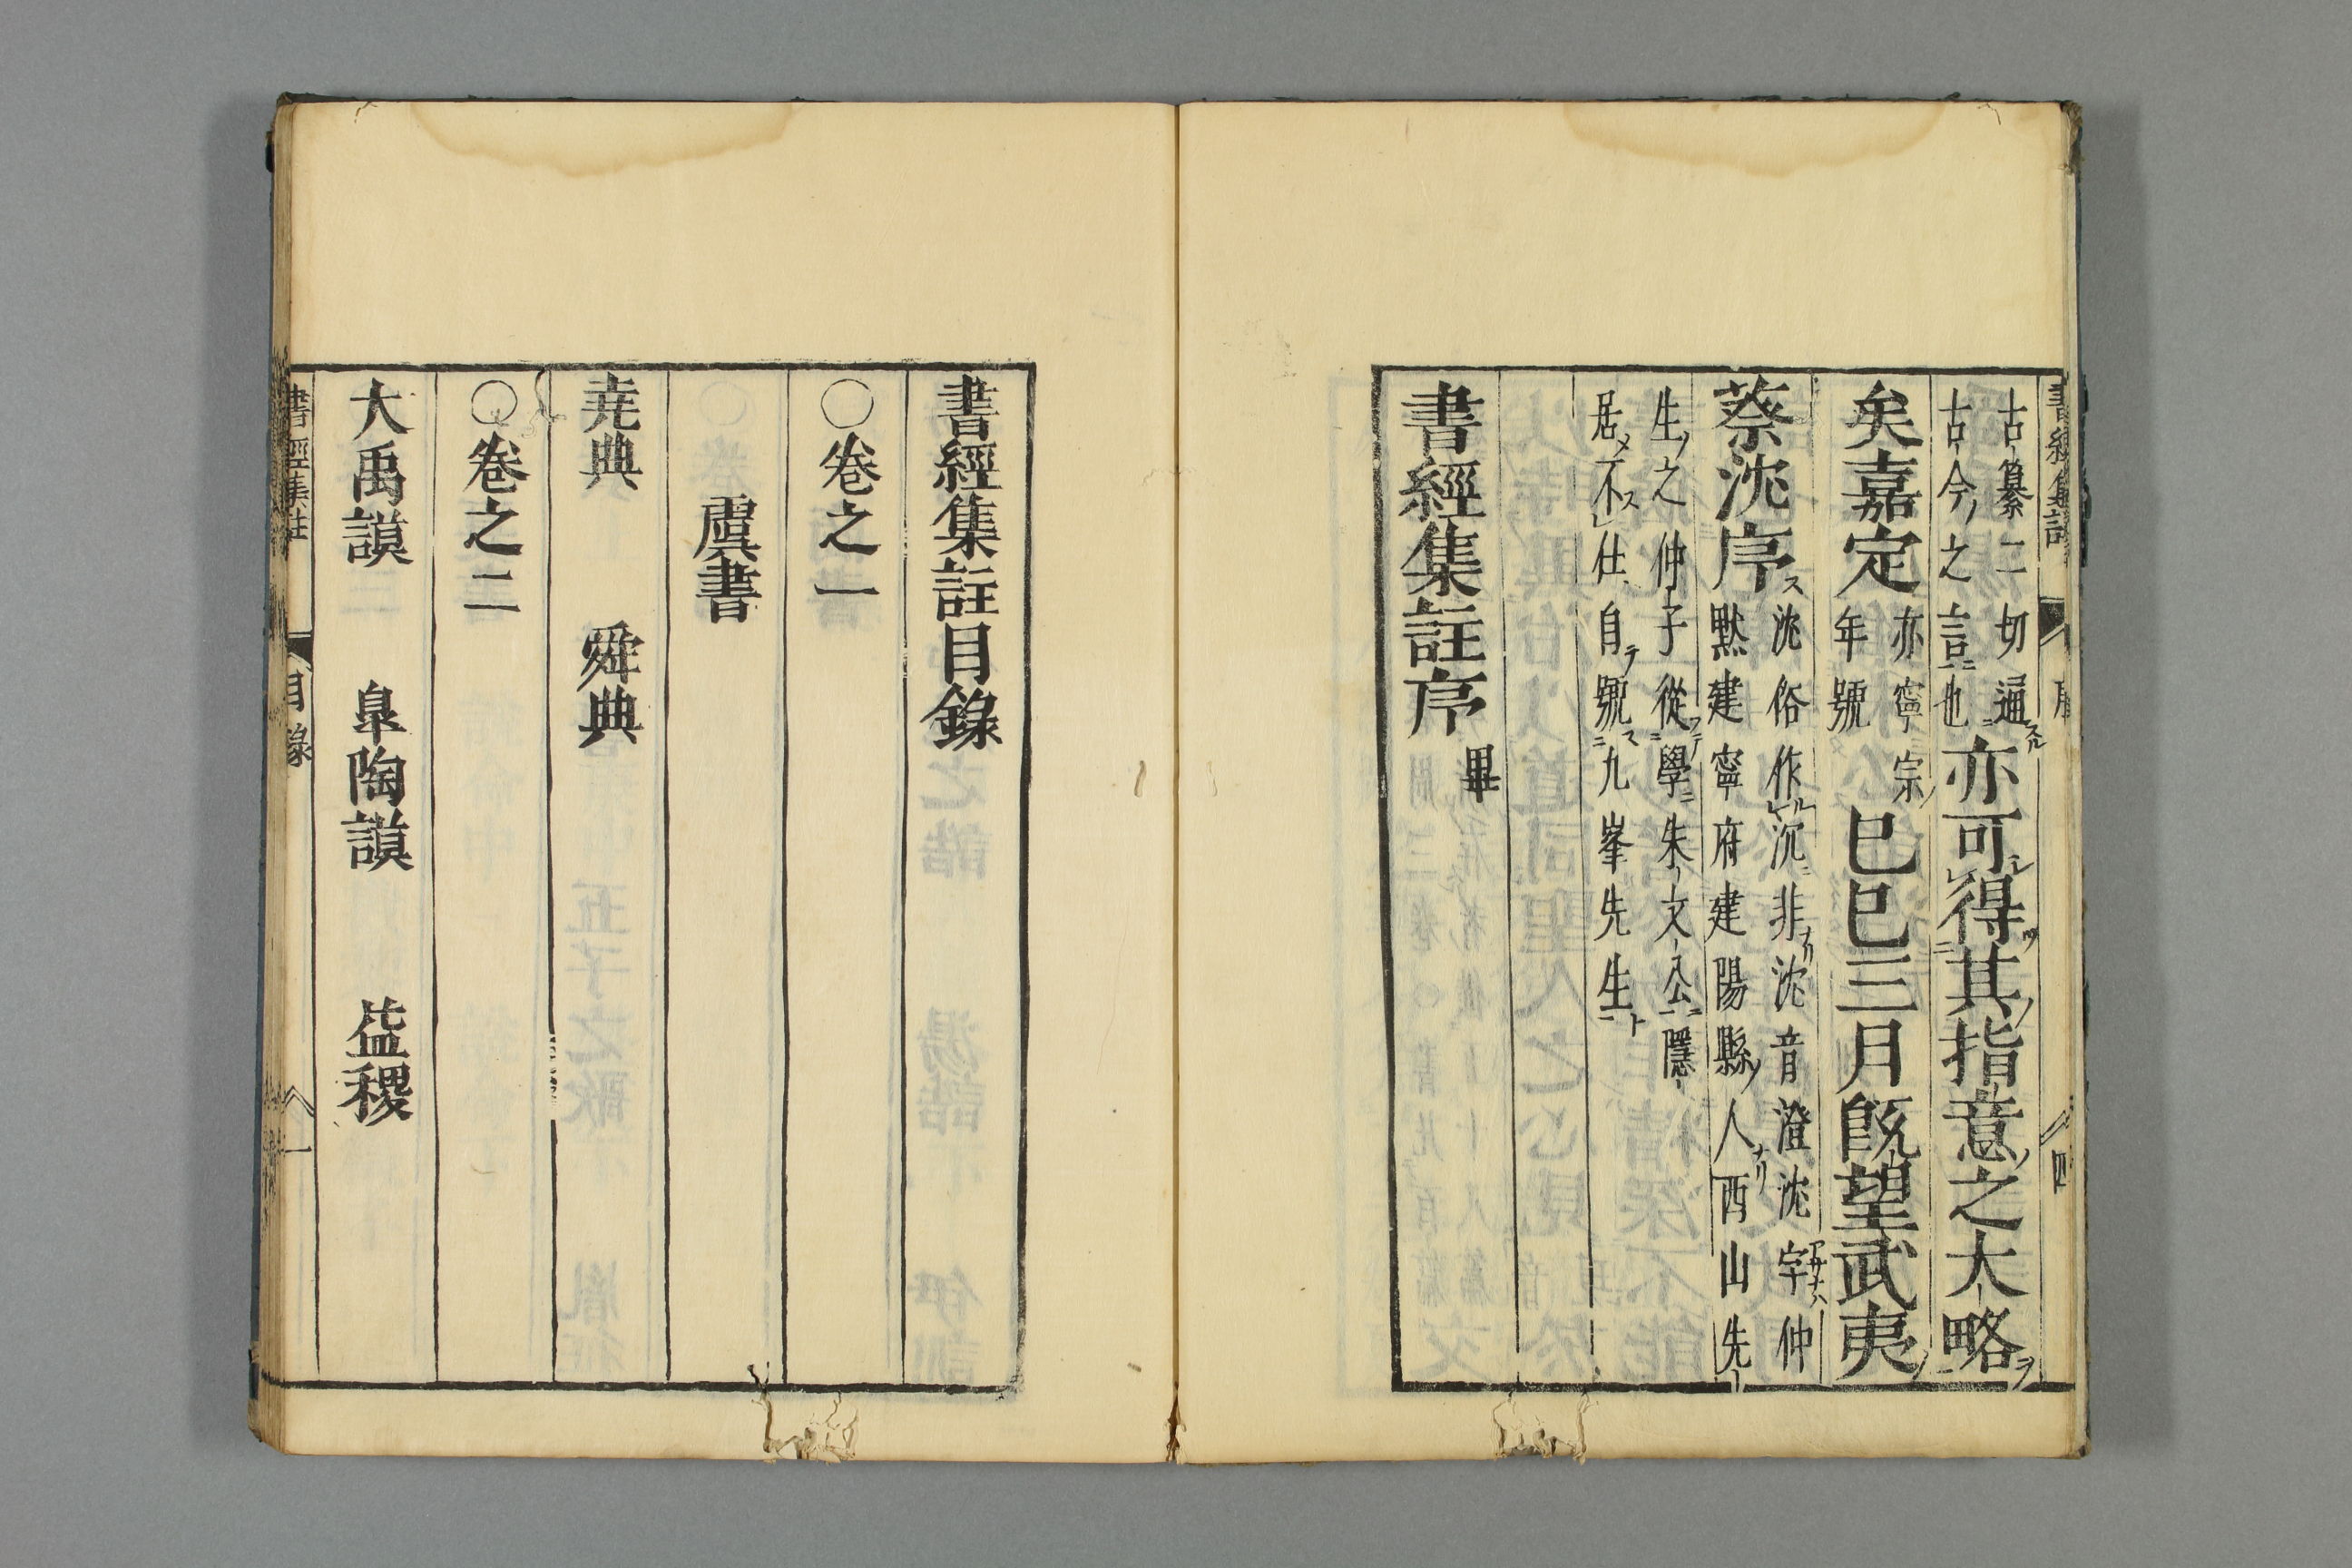 書經集註 序 四
古纂二切通
古今之言也
亦可得其指意之大略
矣嘉定
亦寧宗
年號
己巳三月既望武夷
蔡沈序
沈俗作沉非沈音澄沈字仲
默建寧府建陽縣人西山先
生之仲子從學朱文公隱
居不仕自號九峯先生
書經集註序畢
書經集註目錄
〇卷之一
虞書
堯典 舜典
〇卷之二
大禹謨 皐陶謨 益稷
書經集註 目錄 一